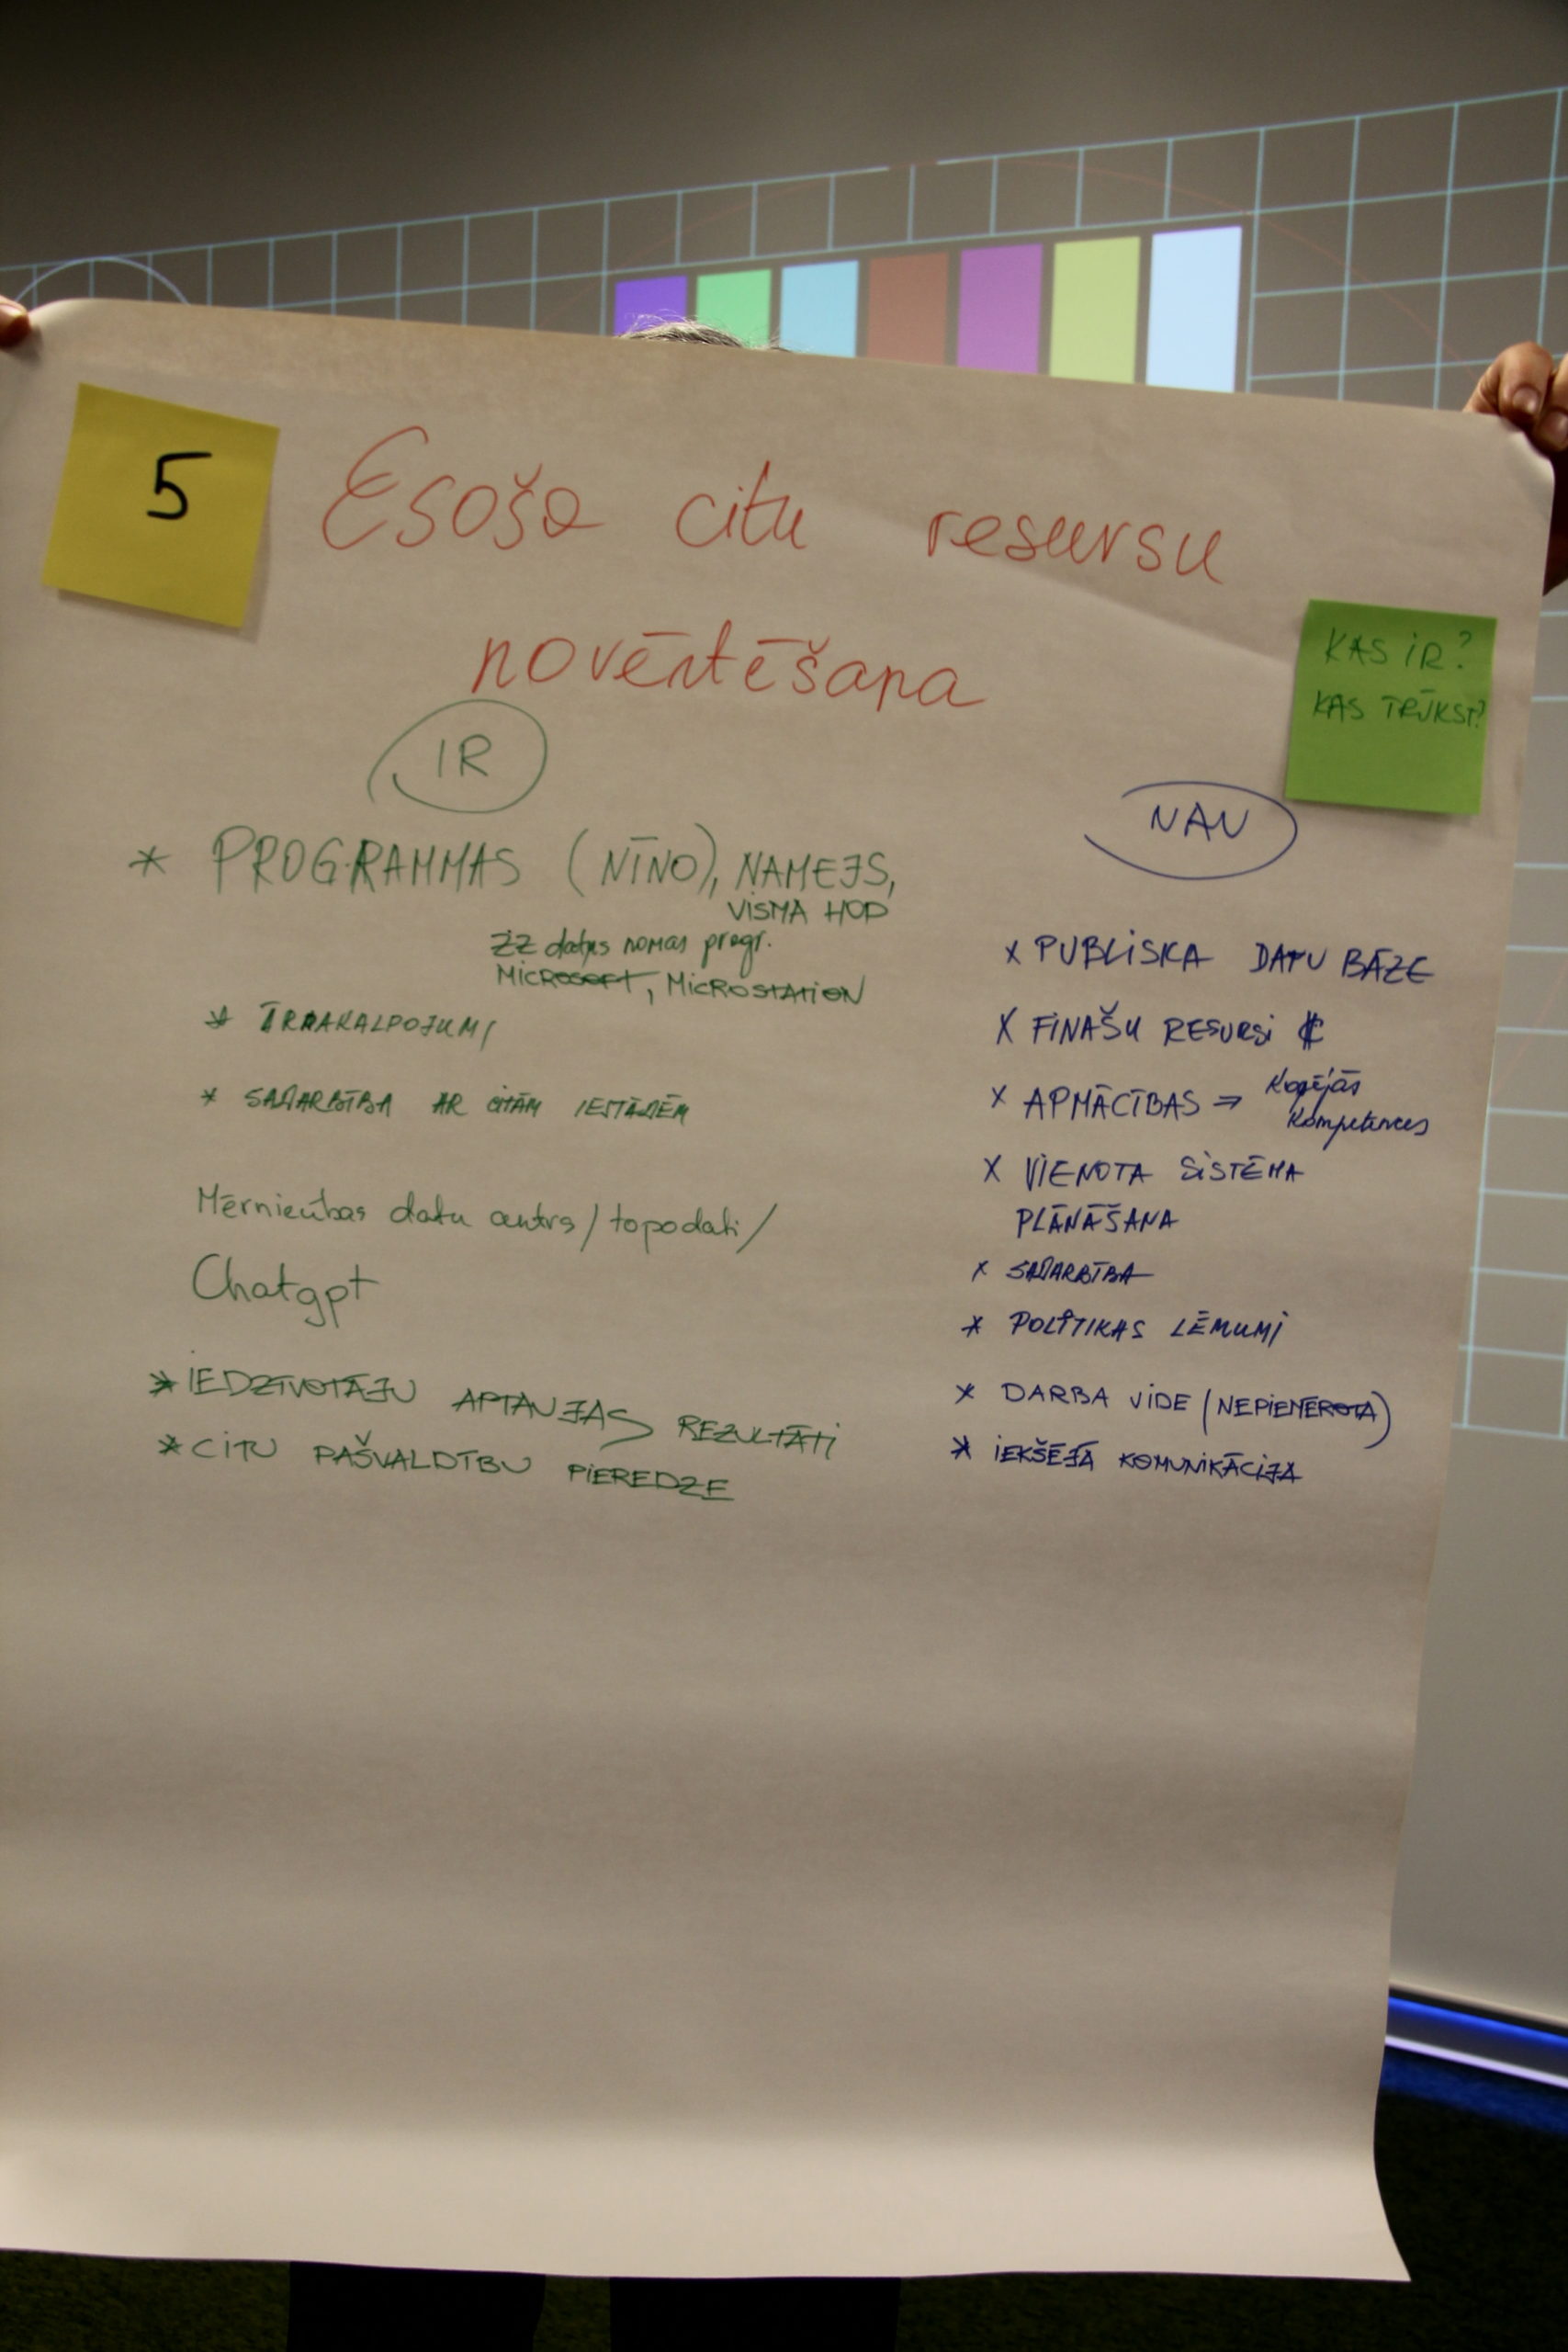 5
Esošo citu resursu
novērtēšana
KAS IR?
KAS TRŪKST?
IR
* PROGRAMMAS (NĪNO), NAMEJS,
VISMA HOP
ZZ datus nomas progr.
MICROSOFT, MICROSTATION
* ĀRPAKALPOJUMI
* SADARBĪBA AR CITĀM IESTĀDĒM
Mērniecības datu centrs/topodati/
Chatgpt
* IEDZĪVOTĀJU APTAUJAS REZULTĀTI
* CITU PAŠVALDĪBU PIEREDZE
NAV
x PUBLISKA DATU BĀZE
x FINAŠU RESURSI €
x APMĀCĪBAS ⇒ Kopējās
Kompetences
x VIENOTA SISTĒMA
PLĀNĀŠANA
x SADARBĪBA
* POLĪTIKAS LĒMUMI
* DARBA VIDE (NEPIEMĒROTA)
* IEKŠĒJĀ KOMUNIKĀCIJA